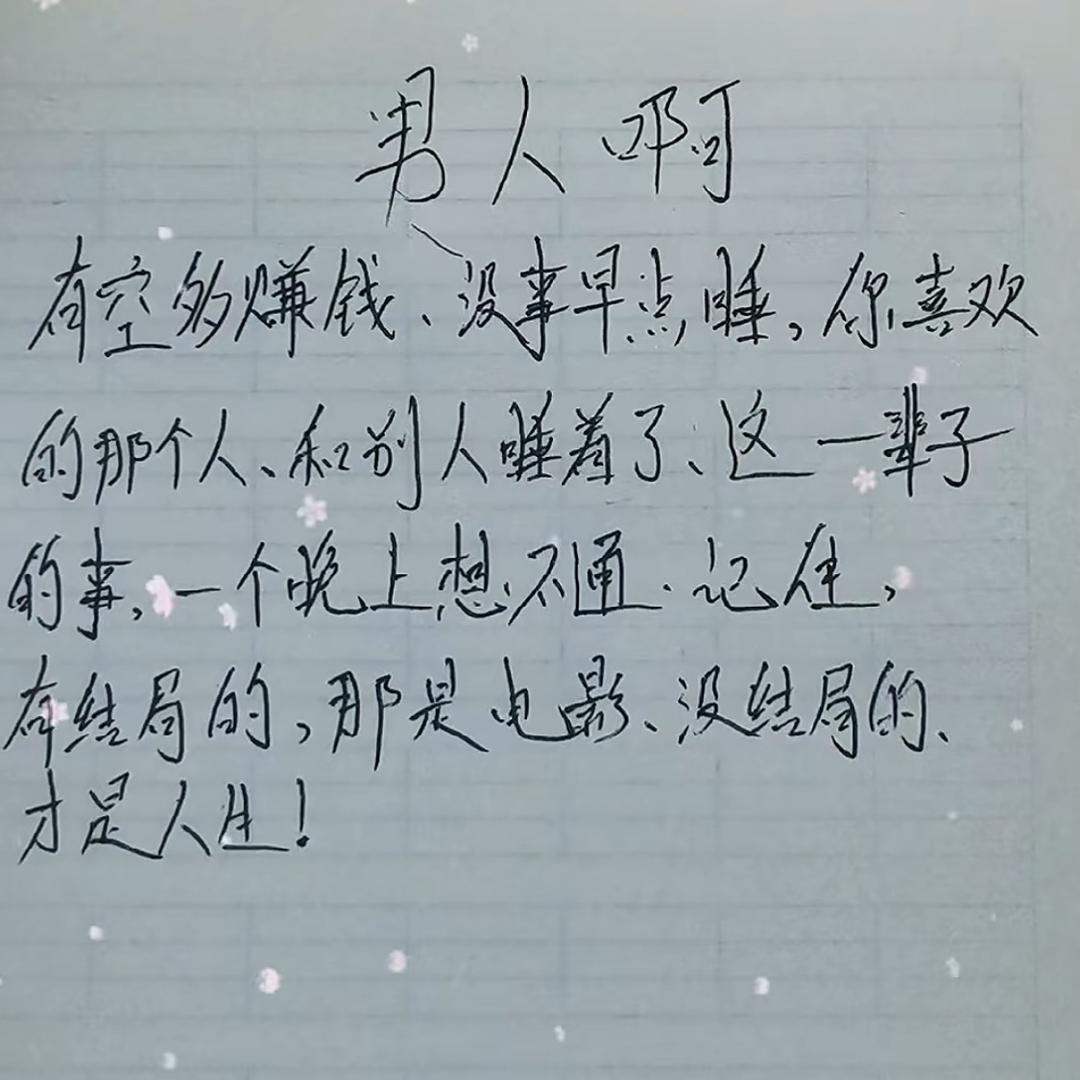 男人啊
有空多赚钱、没事早点睡，你喜欢
的那个人、和别人睡着了、这一辈子
的事，一个晚上想不通.记住，
有结局的，那是电影、没结局的、
才是人生！